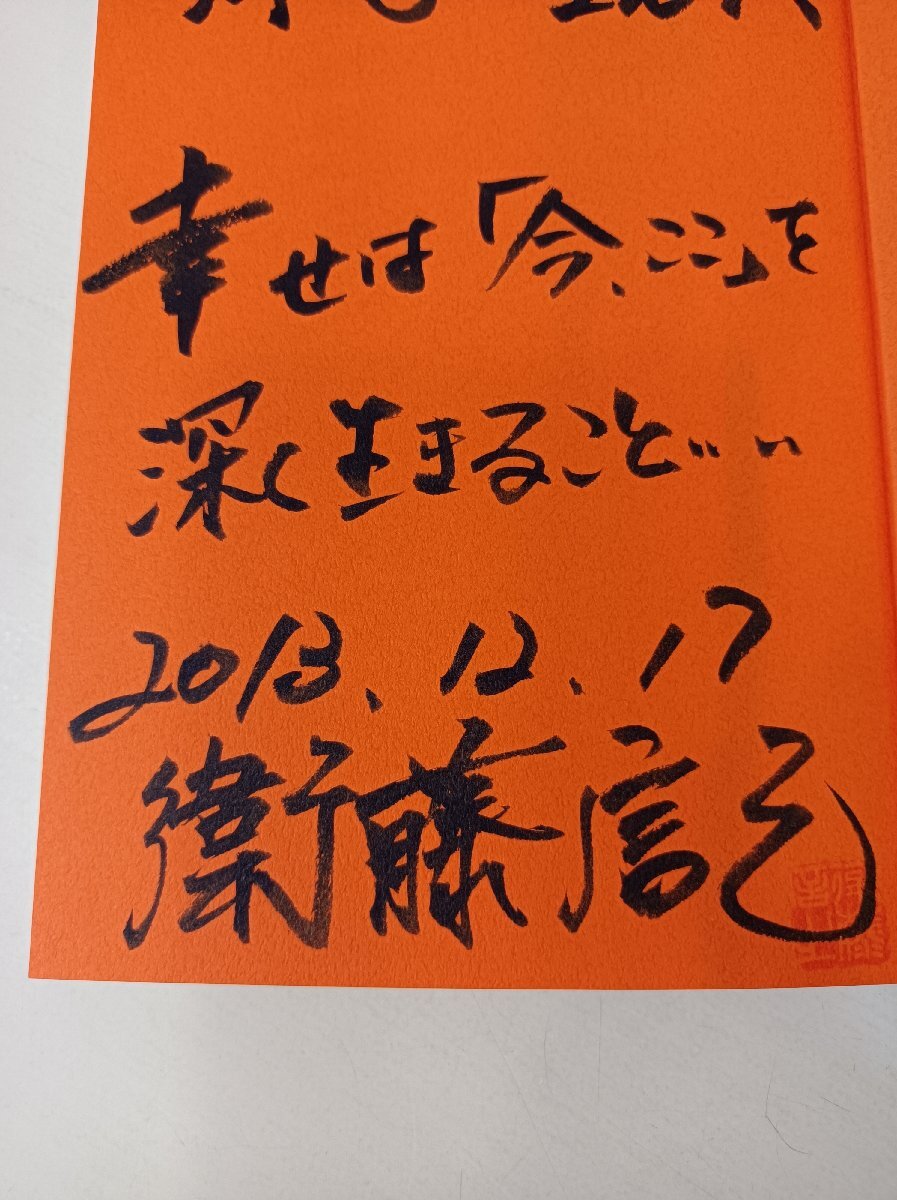 幸せは「今、ここ」を
深く生きること……
2013.12.17
衛藤信之